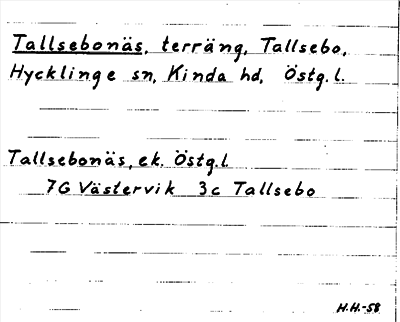 Tallsebonäs, terräng, Tallsebo,
Hycklinge sn, Kinda hd, Östg.l.
Tallsebonäs, ek. Östg.l
7G Västervik 3c Tallsebo
H.H.-58